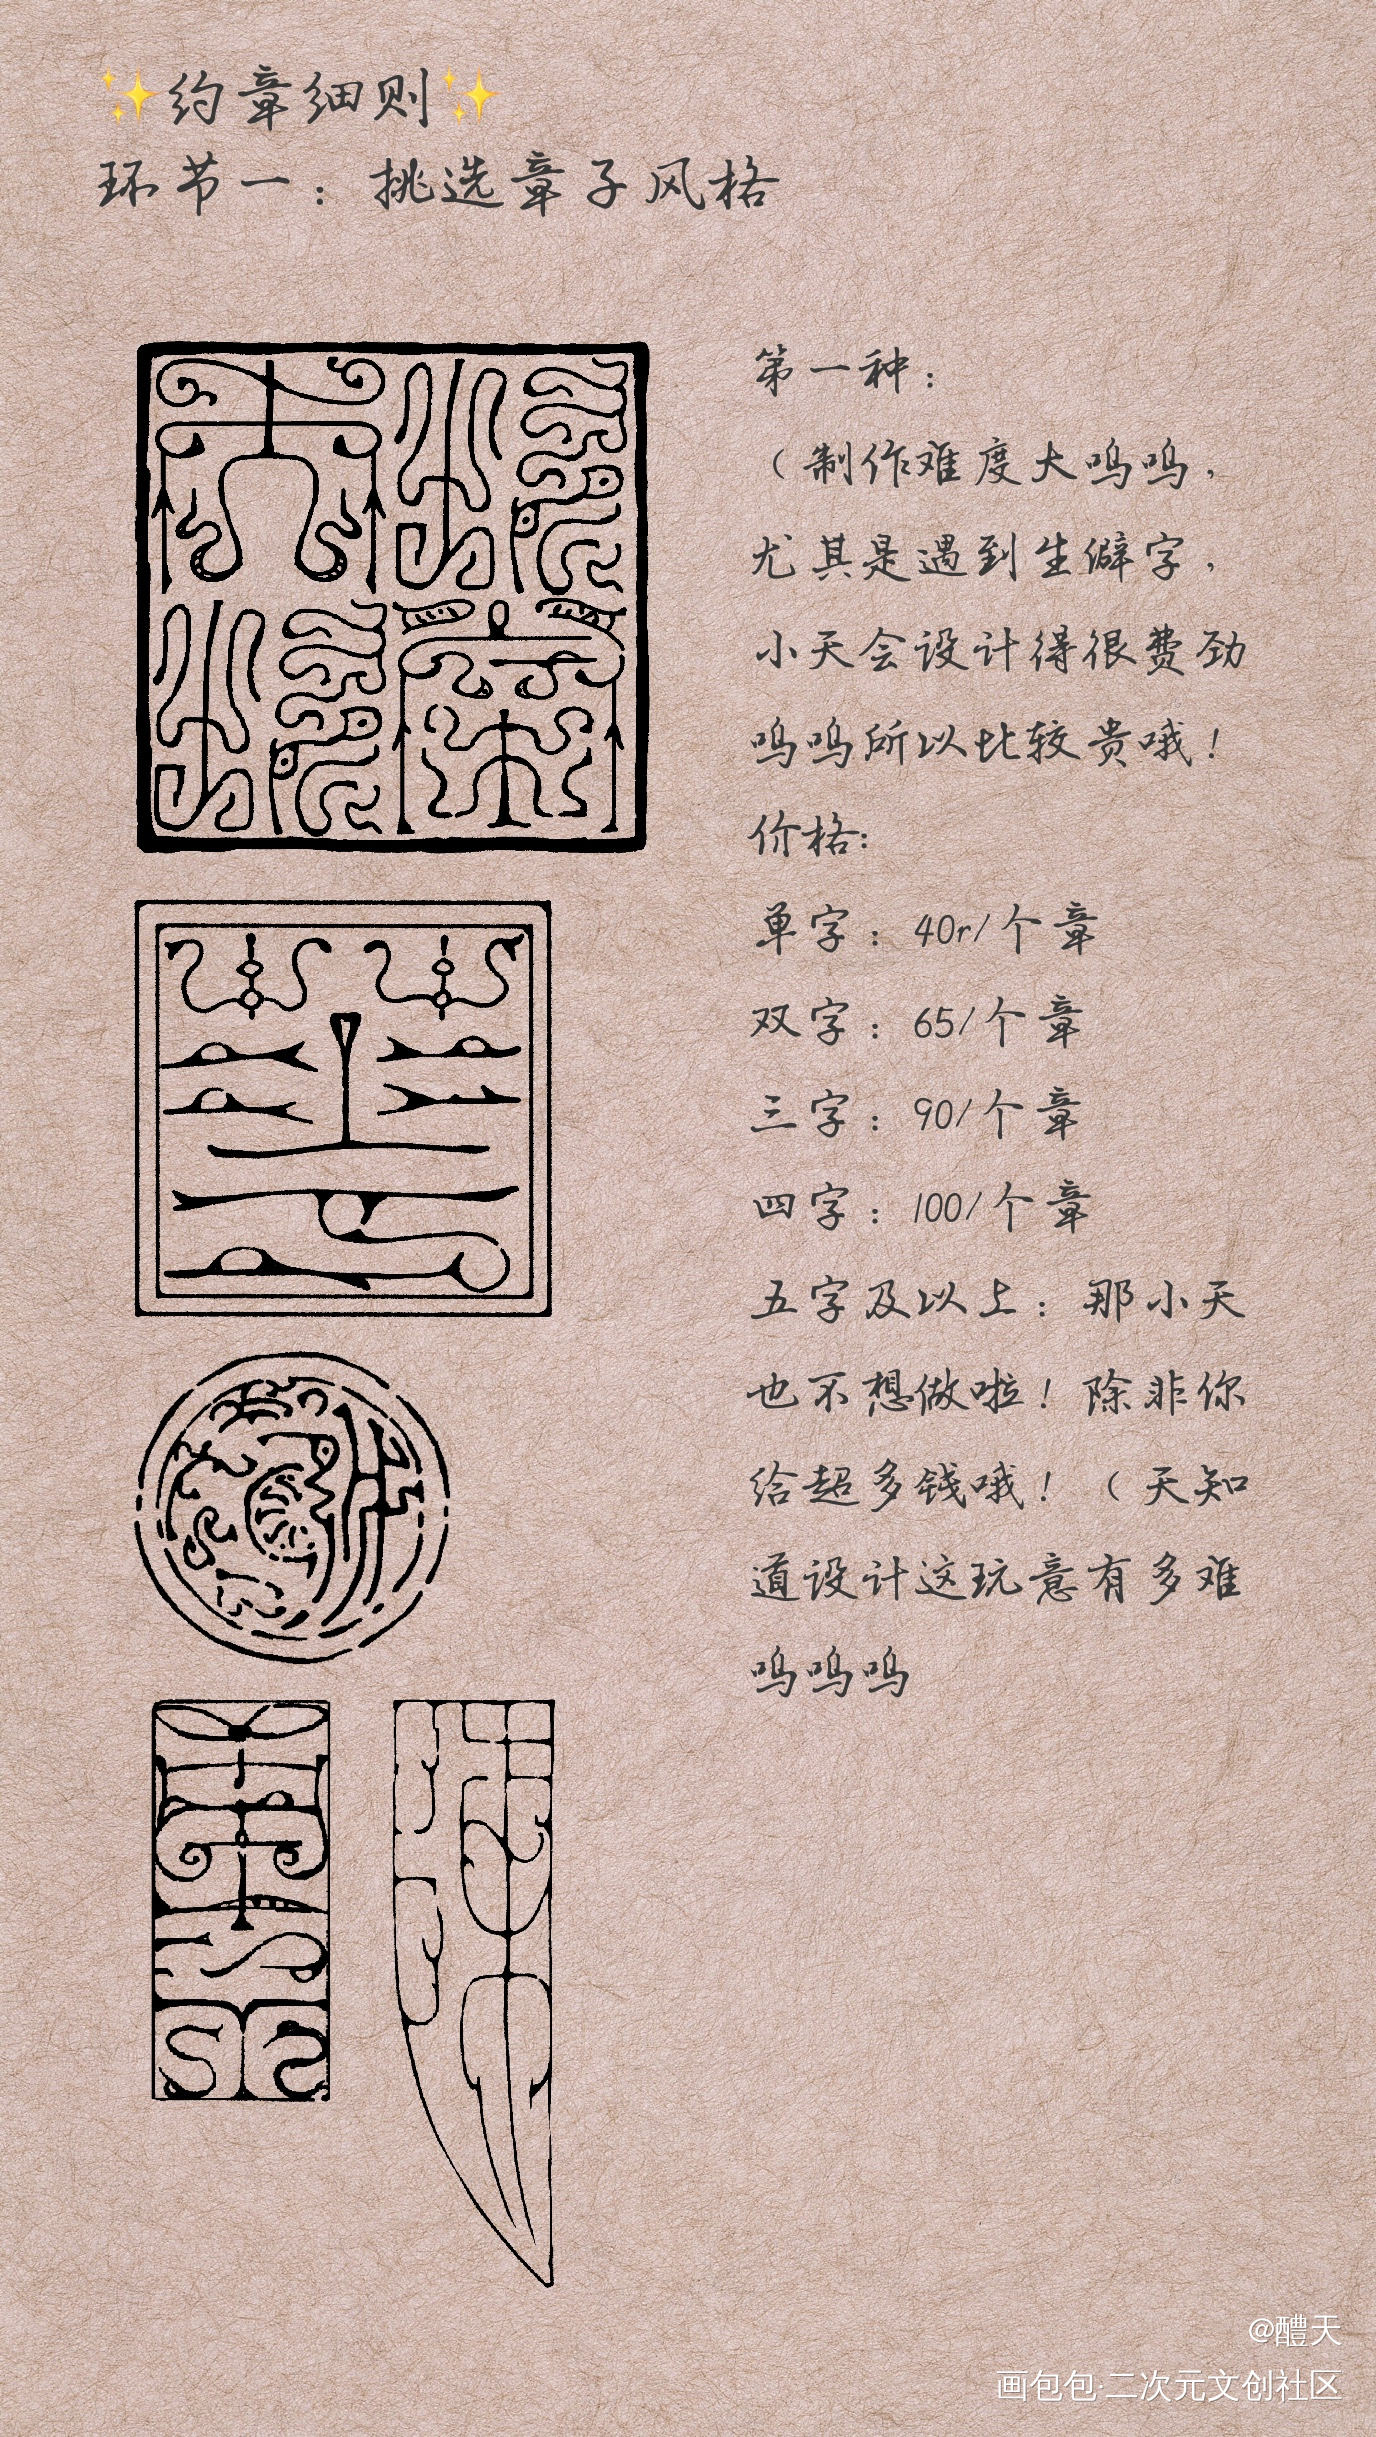 ✨约章细则✨
环节一：挑选章子风格
第一种：
（制作难度大呜呜，
尤其是遇到生僻字，
小天会设计得很费劲
呜呜所以比较贵哦！
价格：
单字：40r/个章
双字：65/个章
三字：90/个章
四字：100/个章
五字及以上：那小天
也不想做啦！除非你
给超多钱哦！（天知
道设计这玩意有多难
呜呜呜
@醴天
画包包·二次元文创社区